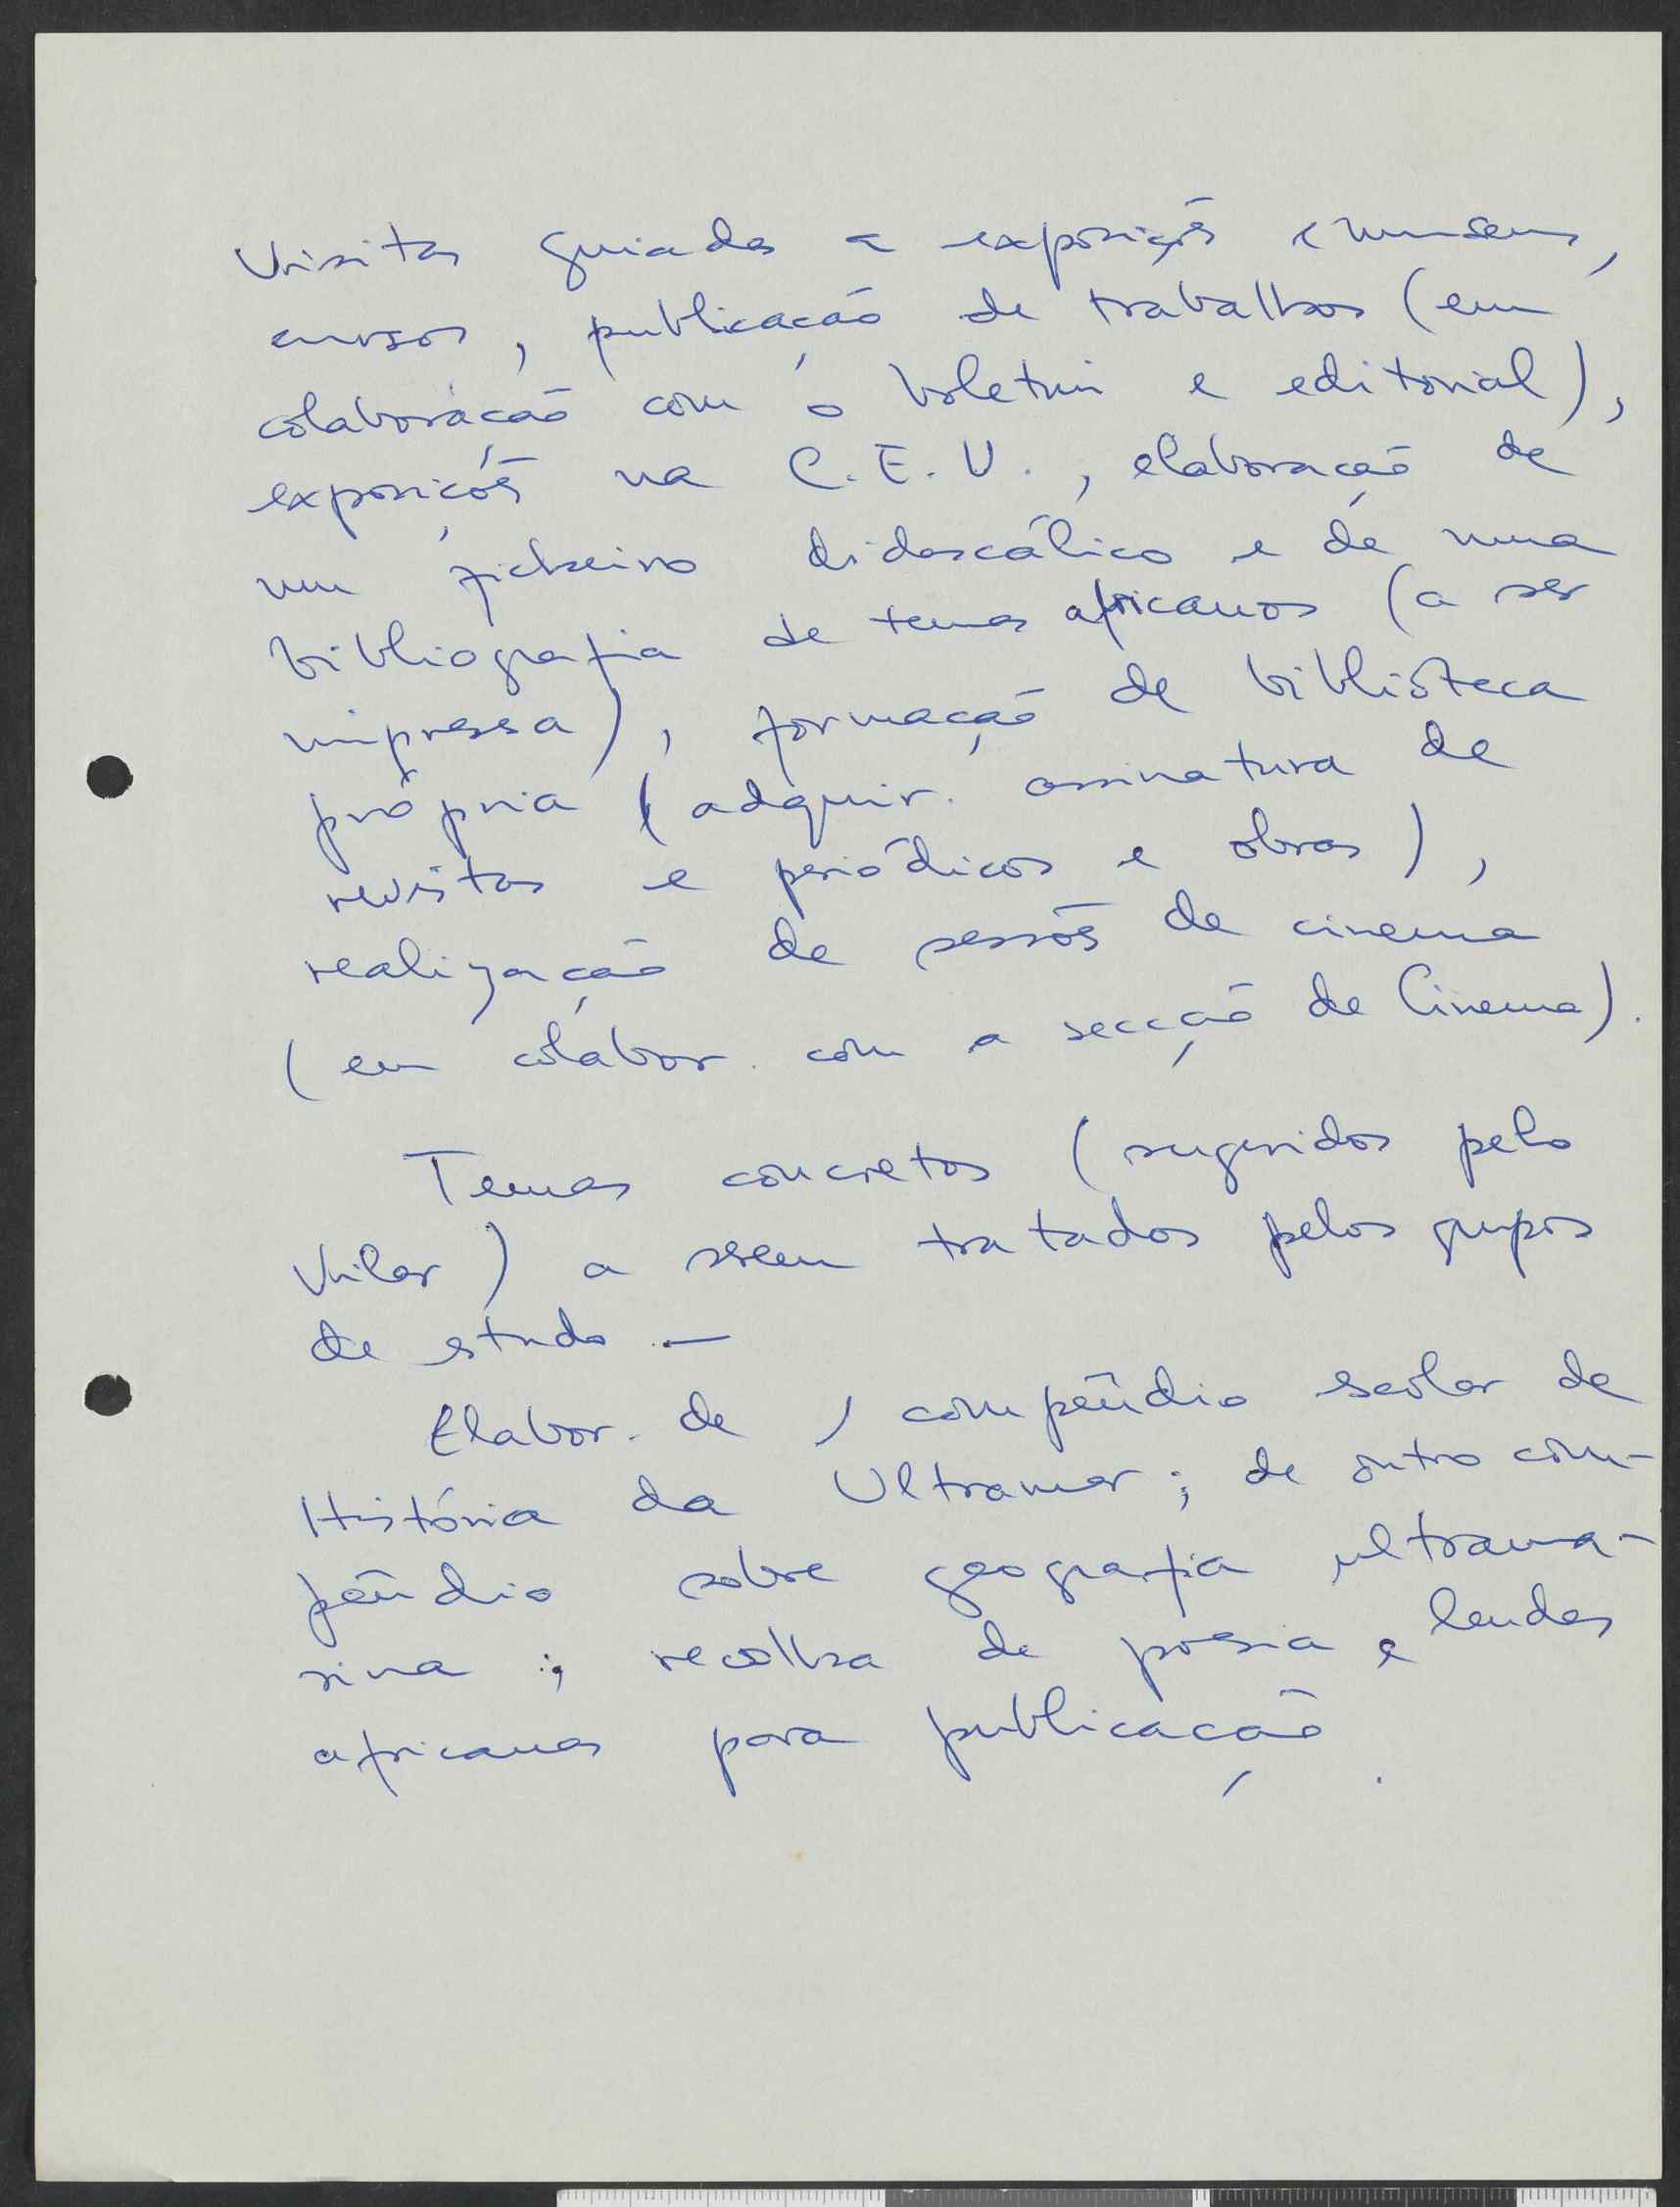 Visitas guiadas a exposições e museus,
cursos, publicação de trabalhos (em
colaboração com o boletim e editorial),
exposições na C.E.U., elaboração de
um ficheiro didascálico e de uma
bibliografia de temas africanos (a ser
impressa), formação de biblioteca
própria (adquir. assinatura de
revistas e periódicos e obras),
realização de sessões de cinema
(em colabor. com a secção de Cinema).
Temas concretos (sugeridos pelo
Vilar) a serem tratados pelos grupos
de estudo. —
Elabor. de 1 compêndio escolar de
História da Ultramar; de outro com-
pêndio sobre geografia ultrama-
rina; recolha de poesia e lendas
africanas para publicação.